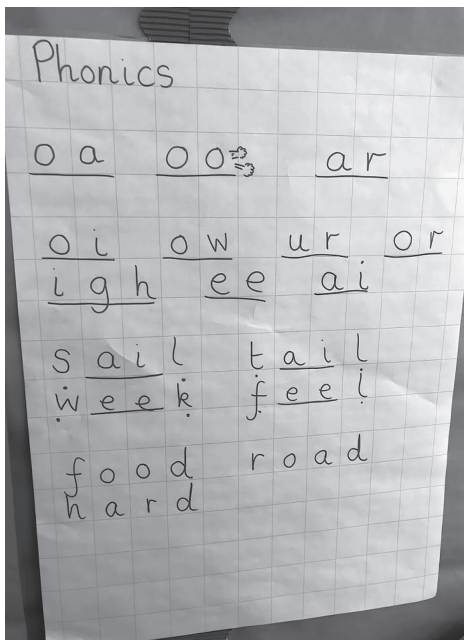 Phonics
oa oo ar
oi ow ur or
igh ee ai
sail tail
week feel
food road
hard